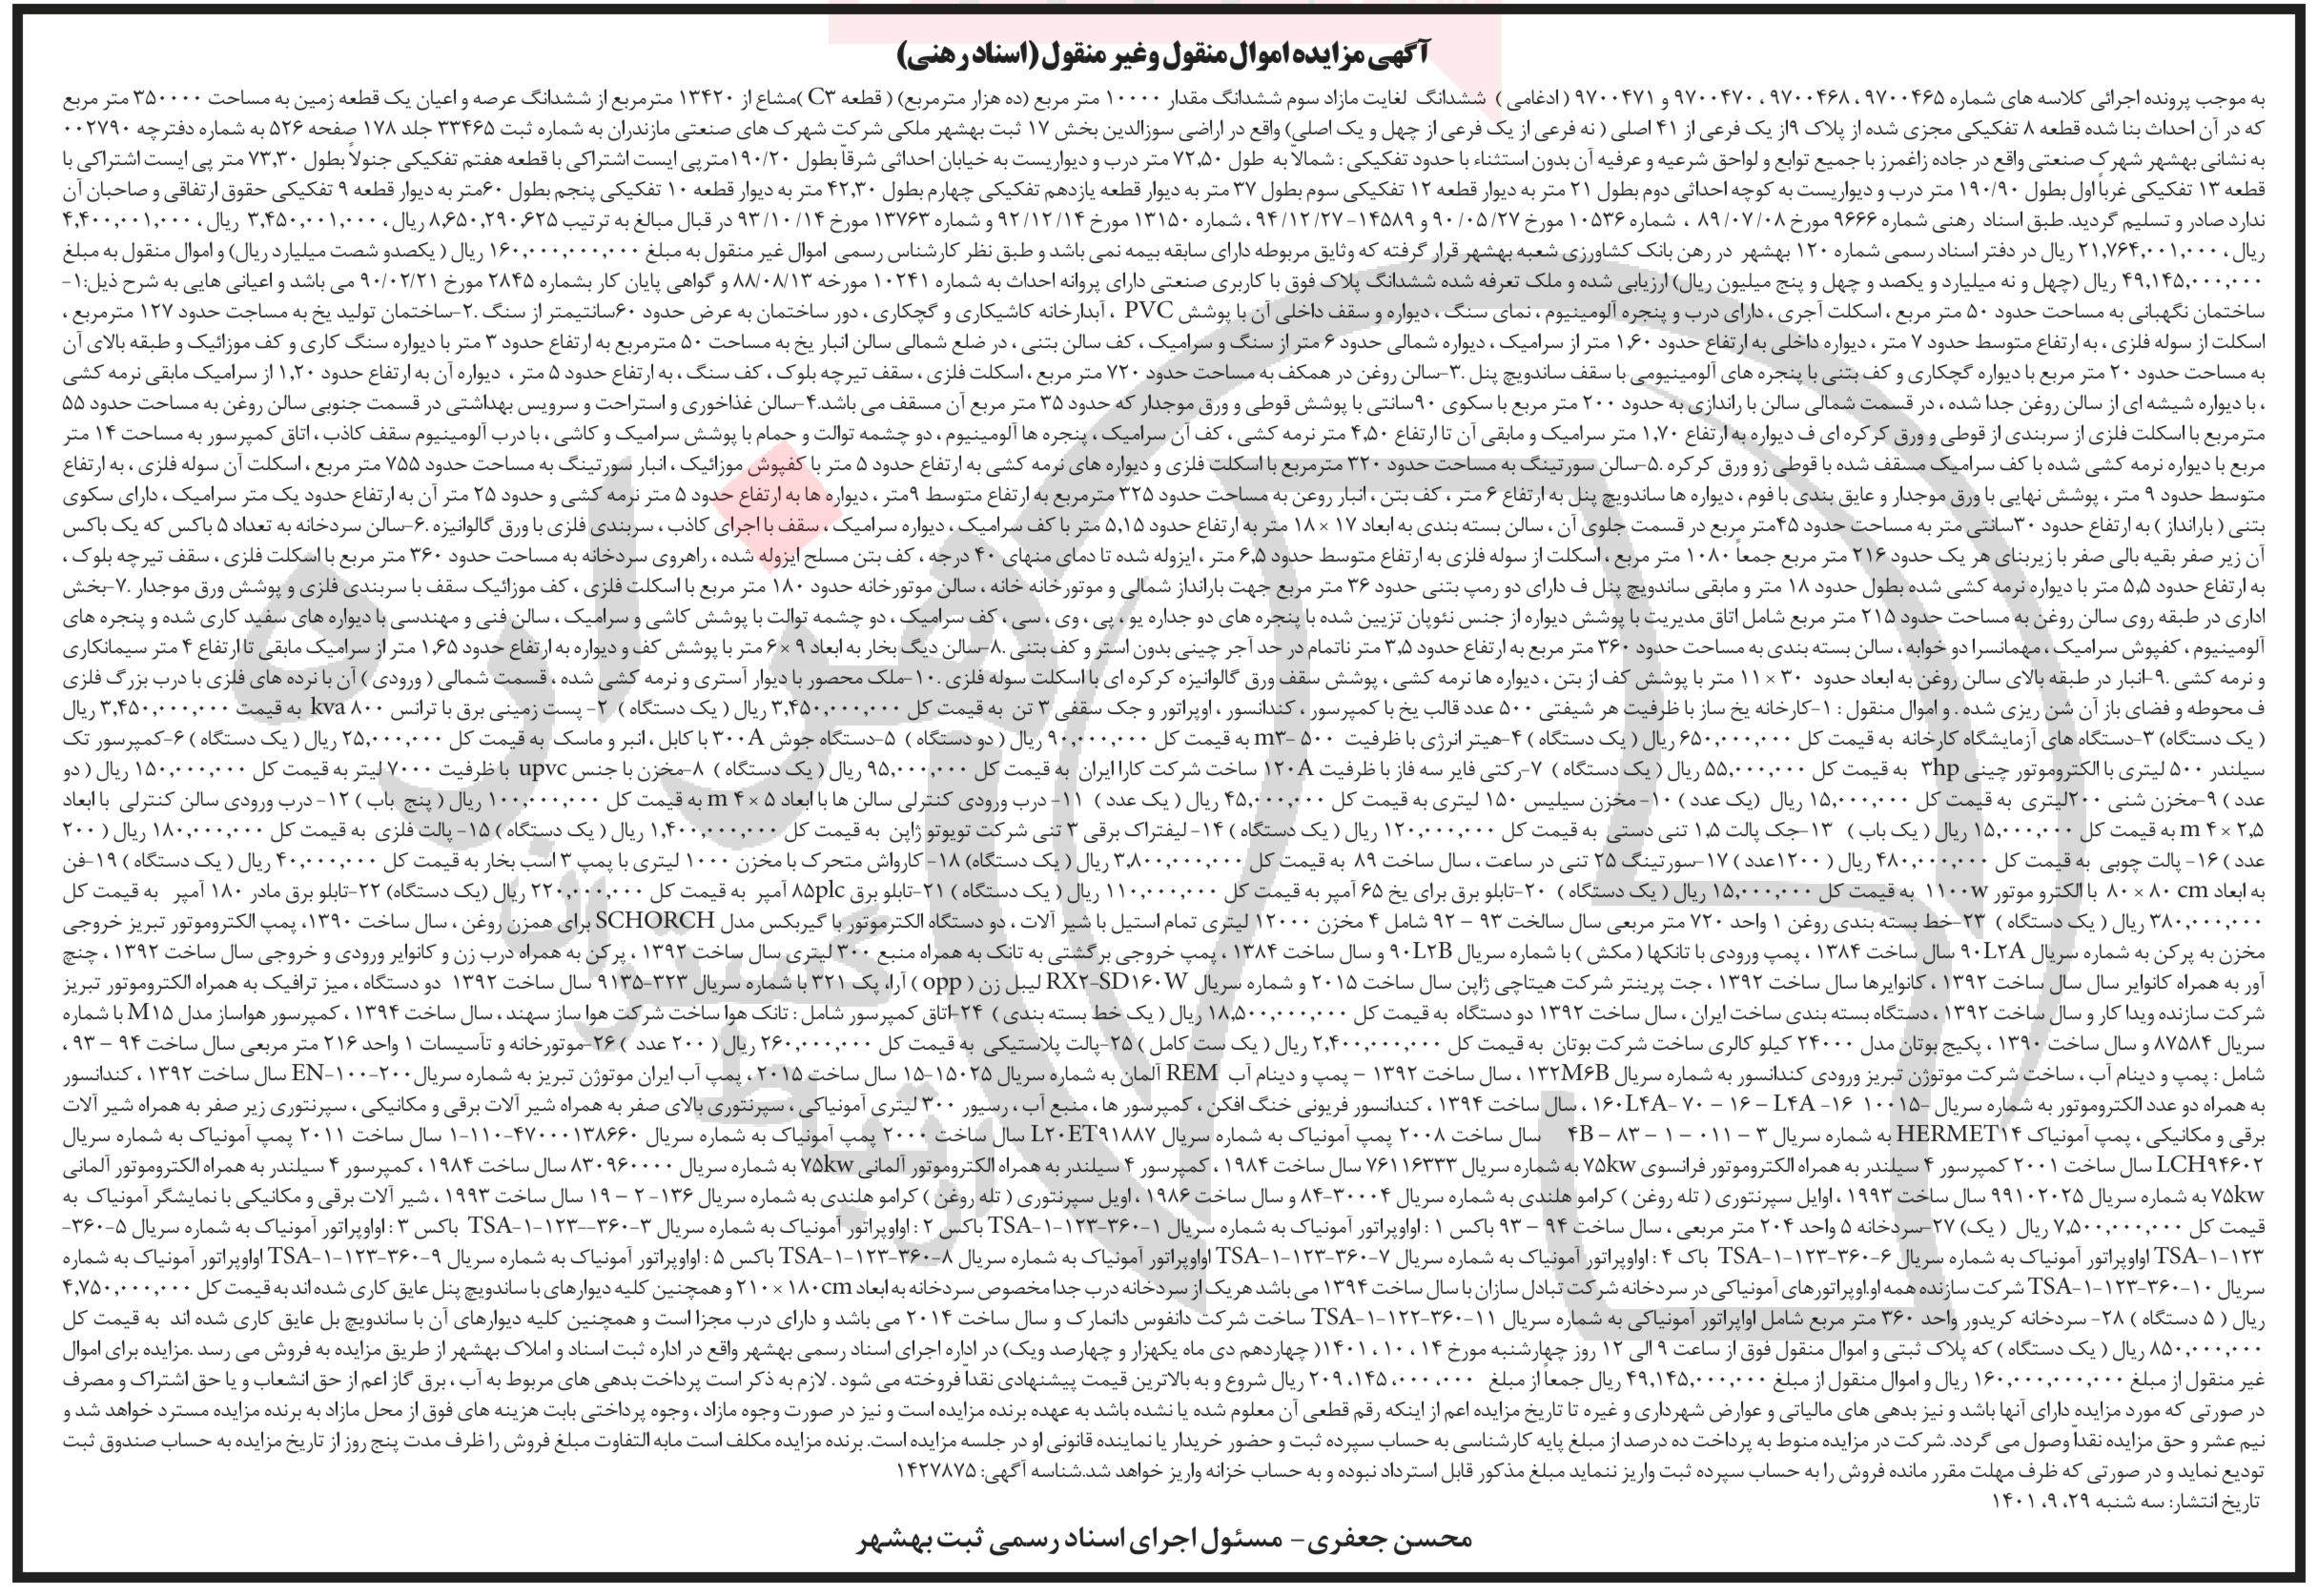 آگهی مزایده اموال منقول وغیر منقول (اسناد رهنی)
به موجب پرونده اجرائی کلاسه های شماره ۹۷۰۰۴۶۵ ، ۹۷۰۰۴۶۸ ، ۹۷۰۰۴۷۰ و ۹۷۰۰۴۷۱ ( ادغامی ) ششدانگ لغایت مازاد سوم ششدانگ مقدار ۱۰۰۰۰ متر مربع (ده هزار مترمربع) ( قطعه C۳ )مشاع از ۱۳۴۲۰ مترمربع از ششدانگ عرصه و اعیان یک قطعه زمین به مساحت ۳۵۰۰۰۰ متر مربع
که در آن احداث بنا شده قطعه ۸ تفکیکی مجزی شده از پلاک ۹از یک فرعی از ۴۱ اصلی ( نه فرعی از یک فرعی از چهل و یک اصلی) واقع در اراضی سوزالدین بخش ۱۷ ثبت بهشهر ملکی شرکت شهرک های صنعتی مازندران به شماره ثبت ۳۳۴۶۵ جلد ۱۷۸ صفحه ۵۲۶ به شماره دفترچه ۰۰۲۷۹۰
به نشانی بهشهر شهرک صنعتی واقع در جاده زاغمرز با جمیع توابع و لواحق شرعیه و عرفیه آن بدون استثناء با حدود تفکیکی : شمالاً به طول ۷۲,۵۰ متر درب و دیواریست به خیابان احداثی شرقاً بطول ۱۹۰/۲۰مترپی ایست اشتراکی با قطعه هفتم تفکیکی جنولاً بطول ۷۳,۳۰ متر پی ایست اشتراکی با
قطعه ۱۳ تفکیکی غرباً اول بطول ۱۹۰/۹۰ متر درب و دیواریست به کوچه احداثی دوم بطول ۲۱ متر به دیوار قطعه ۱۲ تفکیکی سوم بطول ۳۷ متر به دیوار قطعه یازدهم تفکیکی چهارم بطول ۴۲,۳۰ متر به دیوار قطعه ۱۰ تفکیکی پنجم بطول ۶۰متر به دیوار قطعه ۹ تفکیکی حقوق ارتفاقی و صاحبان آن
ندارد صادر و تسلیم گردید. طبق اسناد رهنی شماره ۹۶۶۶ مورخ ۸۹/۰۷/۰۸ ، شماره ۱۰۵۳۶ مورخ ۹۰/۰۵/۲۷ و ۱۴۵۸۹- ۹۴/۱۲/۲۷ ، شماره ۱۳۱۵۰ مورخ ۹۲/۱۲/۱۴ و شماره ۱۳۷۶۳ مورخ ۹۳/۱۰/۱۴ در قبال مبالغ به ترتیب ۸,۶۵۰,۲۹۰,۶۲۵ ریال ، ۳,۴۵۰,۰۰۱,۰۰۰ ریال ، ۴,۴۰۰,۰۰۱,۰۰۰
ریال ، ۲۱,۷۶۴,۰۰۱,۰۰۰ ریال در دفتر اسناد رسمی شماره ۱۲۰ بهشهر در رهن بانک کشاورزی شعبه بهشهر قرار گرفته که وثایق مربوطه دارای سابقه بیمه نمی باشد و طبق نظر کارشناس رسمی اموال غیر منقول به مبلغ ۱۶۰,۰۰۰,۰۰۰,۰۰۰ ریال ( یکصدو شصت میلیارد ریال) و اموال منقول به مبلغ
۴۹,۱۴۵,۰۰۰,۰۰۰ ریال (چهل و نه میلیارد و یکصد و چهل و پنج میلیون ریال) ارزیابی شده و ملک تعرفه شده ششدانگ پلاک فوق با کاربری صنعتی دارای پروانه احداث به شماره ۱۰۲۴۱ مورخه ۸۸/۰۸/۱۳ و گواهی پایان کار بشماره ۲۸۴۵ مورخ ۹۰/۰۲/۲۱ می باشد و اعیانی هایی به شرح ذیل:۱-
ساختمان نگهبانی به مساحت حدود ۵۰ متر مربع ، اسکلت آجری ، دارای درب و پنجره آلومینیوم ، نمای سنگ ، دیواره و سقف داخلی آن با پوشش PVC ، آبدارخانه کاشیکاری و گچکاری ، دور ساختمان به عرض حدود ۶۰سانتیمتر از سنگ .۲-ساختمان تولید یخ به مساجت حدود ۱۲۷ مترمربع ،
اسکلت از سوله فلزی ، به ارتفاع متوسط حدود ۷ متر ، دیواره داخلی به ارتفاع حدود ۱,۶۰ متر از سرامیک ، دیواره شمالی حدود ۶ متر از سنگ و سرامیک ، کف سالن بتنی ، در ضلع شمالی سالن انبار یخ به مساحت ۵۰ مترمربع به ارتفاع حدود ۳ متر با دیواره سنگ کاری و کف موزائیک و طبقه بالای آن
به مساحت حدود ۲۰ متر مربع با دیواره گچکاری و کف بتنی با پنجره های آلومینیومی با سقف ساندویچ پنل .۳-سالن روغن در همکف به مساحت حدود ۷۲۰ متر مربع ، اسکلت فلزی ، سقف تیرچه بلوک ، کف سنگ ، به ارتفاع حدود ۵ متر ، دیواره آن به ارتفاع حدود ۱,۲۰ از سرامیک مابقی نرمه کشی
، با دیواره شیشه ای از سالن روغن جدا شده ، در قسمت شمالی سالن با راندازی به حدود ۲۰۰ متر مربع با سکوی ۹۰سانتی با پوشش قوطی و ورق موجدار که حدود ۳۵ متر مربع آن مسقف می باشد.۴-سالن غذاخوری و استراحت و سرویس بهداشتی در قسمت جنوبی سالن روغن به مساحت حدود ۵۵
مترمربع با اسکلت فلزی از سربندی از قوطی و ورق کرکره ای ف دیواره به ارتفاع ۱,۷۰ متر سرامیک و مابقی آن تا ارتفاع ۴,۵۰ متر نرمه کشی ، کف آن سرامیک ، پنجره ها آلومینیوم ، دو چشمه توالت و حمام با پوشش سرامیک و کاشی ، با درب آلومینیوم سقف کاذب ، اتاق کمپرسور به مساحت ۱۴ متر
مربع با دیواره نرمه کشی شده با کف سرامیک مسقف شده با قوطی زو ورق کرکره .۵-سالن سورتینگ به مساحت حدود ۳۲۰ مترمربع با اسکلت فلزی و دیواره های نرمه کشی به ارتفاع حدود ۵ متر با کفپوش موزائیک ، انبار سورتینگ به مساحت حدود ۷۵۵ متر مربع ، اسکلت آن سوله فلزی ، به ارتفاع
متوسط حدود ۹ متر ، پوشش نهایی با ورق موجدار و عایق بندی با فوم ، دیواره ها ساندویچ پنل به ارتفاع ۶ متر ، کف بتن ، انبار روعن به مساحت حدود ۳۲۵ مترمربع به ارتفاع متوسط ۹متر ، دیواره ها به ارتفاع حدود ۵ متر نرمه کشی و حدود ۲۵ متر آن به ارتفاع حدود یک متر سرامیک ، دارای سکوی
بتنی ( بارانداز ) به ارتفاع حدود ۳۰سانتی متر به مساحت حدود ۴۵متر مربع در قسمت جلوی آن ، سالن بسته بندی به ابعاد ۱۷ × ۱۸ متر به ارتفاع حدود ۵,۱۵ متر با کف سرامیک ، دیواره سرامیک ، سقف با اجرای کاذب ، سربندی فلزی با ورق گالوانیزه .۶-سالن سردخانه به تعداد ۵ باکس که یک باکس
آن زیر صفر بقیه بالی صفر با زیربنای هر یک حدود ۲۱۶ متر مربع جمعاً ۱۰۸۰ متر مربع ، اسکلت از سوله فلزی به ارتفاع متوسط حدود ۶,۵ متر ، ایزوله شده تا دمای منهای ۴۰ درجه ، کف بتن مسلح ایزوله شده ، راهروی سردخانه به مساحت حدود ۳۶۰ متر مربع با اسکلت فلزی ، سقف تیرچه بلوک ،
به ارتفاع حدود ۵,۵ متر با دیواره نرمه کشی شده بطول حدود ۱۸ متر و مابقی ساندویچ پنل ف دارای دو رمپ بتنی حدود ۳۶ متر مربع جهت بارانداز شمالی و موتورخانه خانه ، سالن موتورخانه حدود ۱۸۰ متر مربع با اسکلت فلزی ، کف موزائیک سقف با سربندی فلزی و پوشش ورق موجدار .۷-بخش
اداری در طبقه روی سالن روغن به مساحت حدود ۲۱۵ متر مربع شامل اتاق مدیریت با پوشش دیواره از جنس نئوپان تزیین شده با پنجره های دو جداره یو ، پی ، وی ، سی ، کف سرامیک ، دو چشمه توالت با پوشش کاشی و سرامیک ، سالن فنی و مهندسی با دیواره های سفید کاری شده و پنجره های
آلومینیوم ، کفپوش سرامیک ، مهمانسرا دو خوابه ، سالن بسته بندی به مساحت حدود ۳۶۰ متر مربع به ارتفاع حدود ۳,۵ متر ناتمام در حد آجر چینی بدون استر و کف بتنی .۸-سالن دیگ بخار به ابعاد ۹ × ۶ متر با پوشش کف و دیواره به ارتفاع حدود ۱,۶۵ متر از سرامیک مابقی تا ارتفاع ۴ متر سیمانکاری
و نرمه کشی .۹-انبار در طبقه بالای سالن روغن به ابعاد حدود ۳۰ × ۱۱ متر با پوشش کف از بتن ، دیواره ها نرمه کشی ، پوشش سقف ورق گالوانیزه کرکره ای با اسکلت سوله فلزی .۱۰-ملک محصور با دیوار آستری و نرمه کشی شده ، قسمت شمالی ( ورودی ) آن با نرده های فلزی با درب بزرگ فلزی
ف محوطه و فضای باز آن شن ریزی شده . و اموال منقول : ۱-کارخانه یخ ساز با ظرفیت هر شیفتی ۵۰۰ عدد قالب یخ با کمپرسور ، کندانسور ، اوپراتور و جک سقفی ۳ تن به قیمت کل ۳,۴۵۰,۰۰۰,۰۰۰ ریال ( یک دستگاه ) ۲- پست زمینی برق با ترانس ۸۰۰ kva به قیمت ۳,۴۵۰,۰۰۰,۰۰۰ ریال
( یک دستگاه) ۳-دستگاه های آزمایشگاه کارخانه به قیمت کل ۶۵۰,۰۰۰,۰۰۰ ریال ( یک دستگاه ) ۴-هیتر انرژی با ظرفیت ۵۰۰ -m۳ به قیمت کل ۹۰,۰۰۰,۰۰۰ ریال ( دو دستگاه ) ۵-دستگاه جوش ۳۰۰A با کابل ، انبر و ماسک به قیمت کل ۲۵,۰۰۰,۰۰۰ ریال ( یک دستگاه ) ۶-کمپرسور تک
سیلندر ۵۰۰ لیتری با الکتروموتور چینی ۳hp به قیمت کل ۵۵,۰۰۰,۰۰۰ ریال ( یک دستگاه ) ۷-رکتی فایر سه فاز با ظرفیت ۱۲۰A ساخت شرکت کارا ایران به قیمت کل ۹۵,۰۰۰,۰۰۰ ریال ( یک دستگاه ) ۸-مخزن با جنس upvc با ظرفیت ۷۰۰۰ لیتر به قیمت کل ۱۵۰,۰۰۰,۰۰۰ ریال ( دو
عدد ) ۹-مخزن شنی ۲۰۰لیتری به قیمت کل ۱۵,۰۰۰,۰۰۰ ریال (یک عدد ) ۱۰- مخزن سیلیس ۱۵۰ لیتری به قیمت کل ۴۵,۰۰۰,۰۰۰ ریال ( یک عدد ) ۱۱- درب ورودی کنترلی سالن ها با ابعاد ۵ × ۴ m به قیمت کل ۱۰۰,۰۰۰,۰۰۰ ریال ( پنج باب ) ۱۲- درب ورودی سالن کنترلی با ابعاد
۲,۵ × ۴ m به قیمت کل ۱۵,۰۰۰,۰۰۰ ریال ( یک باب ) ۱۳-جک پالت ۱,۵ تنی دستی به قیمت کل ۱۲۰,۰۰۰,۰۰۰ ریال ( یک دستگاه ) ۱۴- لیفتراک برقی ۳ تنی شرکت تویوتو ژاپن به قیمت کل ۱,۴۰۰,۰۰۰,۰۰۰ ریال ( یک دستگاه ) ۱۵- پالت فلزی به قیمت کل ۱۸۰,۰۰۰,۰۰۰ ریال ( ۲۰۰
عدد ) ۱۶- پالت چوبی به قیمت کل ۴۸۰,۰۰۰,۰۰۰ ریال ( ۱۲۰۰عدد ) ۱۷-سورتینگ ۲۵ تنی در ساعت ، سال ساخت ۸۹ به قیمت کل ۳,۸۰۰,۰۰۰,۰۰۰ ریال ( یک دستگاه) ۱۸- کارواش متحرک با مخزن ۱۰۰۰ لیتری با پمپ ۳ اسب بخار به قیمت کل ۴۰,۰۰۰,۰۰۰ ریال ( یک دستگاه ) ۱۹-فن
به ابعاد ۸۰ × ۸۰ cm با الکترو موتور ۱۱۰۰w به قیمت کل ۱۵,۰۰۰,۰۰۰ ریال ( یک دستگاه ) ۲۰-تابلو برق برای یخ ۶۵ آمپر به قیمت کل ۱۱۰,۰۰۰,۰۰۰ ریال ( یک دستگاه ) ۲۱-تابلو برق ۸۵plc آمپر به قیمت کل ۲۲۰,۰۰۰,۰۰۰ ریال (یک دستگاه) ۲۲-تابلو برق مادر ۱۸۰ آمپر به قیمت کل
۳۸۰,۰۰۰,۰۰۰ ریال ( یک دستگاه ) ۲۳-خط بسته بندی روغن ۱ واحد ۷۲۰ متر مربعی سال سالخت ۹۳ – ۹۲ شامل ۴ مخزن ۱۲۰۰۰ لیتری تمام استیل با شیر آلات ، دو دستگاه الکتروموتور با گیربکس مدل SCHORCH برای همزن روغن ، سال ساخت ۱۳۹۰، پمپ الکتروموتور تبریز خروجی
مخزن به پرکن به شماره سریال ۹۰L۲A سال ساخت ۱۳۸۴ ، پمپ ورودی با تانکها ( مکش ) با شماره سریال ۹۰L۲B و سال ساخت ۱۳۸۴ ، پمپ خروجی برگشتی به تانک به همراه منبع ۳۰۰ لیتری سال ساخت ۱۳۹۲ ، پرکن به همراه درب زن و کانوایر ورودی و خروجی سال ساخت ۱۳۹۲ ، چنچ
آور به همراه کانوایر سال سال ساخت ۱۳۹۲ ، کانوایرها سال ساخت ۱۳۹۲ ، جت پرینتر شرکت هیتاچی ژاپن سال ساخت ۲۰۱۵ و شماره سریال RX۲-SD۱۶۰W لیبل زن ( opp ) آراد پک ۳۲۱ با شماره سریال ۳۲۳-۹۱۳۵ سال ساخت ۱۳۹۲ دو دستگاه ، میز ترافیک به همراه الکتروموتور تبریز
شرکت سازنده ویدا کار و سال ساخت ۱۳۹۲ ، دستگاه بسته بندی ساخت ایران ، سال ساخت ۱۳۹۲ دو دستگاه به قیمت کل ۱۸,۵۰۰,۰۰۰,۰۰۰ ریال ( یک خط بسته بندی ) ۲۴-اتاق کمپرسور شامل : تانک هوا ساخت شرکت هوا ساز سهند ، سال ساخت ۱۳۹۴ ، کمپرسور هواساز مدل M۱۵ با شماره
سریال ۸۷۵۸۴ و سال ساخت ۱۳۹۰ ، پکیج بوتان مدل ۲۴۰۰۰ کیلو کالری ساخت شرکت بوتان به قیمت کل ۲,۴۰۰,۰۰۰,۰۰۰ ریال ( یک ست کامل ) ۲۵-پالت پلاستیکی به قیمت کل ۲۶۰,۰۰۰,۰۰۰ ریال ( ۲۰۰ عدد ) ۲۶-موتورخانه و تأسیسات ۱ واحد ۲۱۶ متر مربعی سال ساخت ۹۴ – ۹۳ ،
شامل : پمپ و دینام آب ، ساخت شرکت موتوژن تبریز ورودی کندانسور به شماره سریال ۱۳۲M۶B ، سال ساخت ۱۳۹۲ – پمپ و دینام آب REM آلمان به شماره سریال ۱۵۰۲۵-۱۵ سال ساخت ۲۰۱۵ ، پمپ آب ایران موتوژن تبریز به شماره سریال EN-۱۰۰-۲۰۰ سال ساخت ۱۳۹۲ ، کندانسور
به همراه دو عدد الکتروموتور به شماره سریال ۱۰۰۱۵- ۱۶- ۱۶۰L۴A- ۷۰ – ۱۶ – L۴A ، سال ساخت ۱۳۹۴ ، کندانسور فریونی خنگ افکن ، کمپرسور ها ، منبع آب ، رسیور ۳۰۰ لیتری آمونیاکی ، سپرنتوری بالای صفر به همراه شیر آلات برقی و مکانیکی ، سپرنتوری زیر صفر به همراه شیر آلات
برقی و مکانیکی ، پمپ آمونیاک HERMET۱۴ به شماره سریال ۳ – ۰۱۱ – ۱ – ۸۳ – ۴B سال ساخت ۲۰۰۸ پمپ آمونیاک به شماره سریال L۲۰ET۹۱۸۸۷ سال ساخت ۲۰۰۰ پمپ آمونیاک به شماره سریال ۴۷۰۰۰۱۳۸۶۶۰-۱۱۰-۱ سال ساخت ۲۰۱۱ پمپ آمونیاک به شماره سریال
LCH۹۴۶۰۲ سال ساخت ۲۰۰۱ کمپرسور ۴ سیلندر به همراه الکتروموتور فرانسوی ۷۵kw به شماره سریال ۷۶۱۱۶۳۳۳ سال ساخت ۱۹۸۴ ، کمپرسور ۴ سیلندر به همراه الکتروموتور آلمانی ۷۵kw به شماره سریال ۸۳۰۹۶۰۰۰۰ سال ساخت ۱۹۸۴ ، کمپرسور ۴ سیلندر به همراه الکتروموتور آلمانی
۷۵kw به شماره سریال ۹۹۱۰۲۰۲۵ سال ساخت ۱۹۹۳ ، اوایل سپرنتوری ( تله روغن ) کرامو هلندی به شماره سریال ۳۰۰۰۴-۸۴ و سال ساخت ۱۹۸۶ ، اویل سپرنتوری ( تله روغن ) کرامو هلندی به شماره سریال ۱۳۶- ۲ – ۱۹ سال ساخت ۱۹۹۳ ، شیر آلات برقی و مکانیکی با نمایشگر آمونیاک به
قیمت کل ۷,۵۰۰,۰۰۰,۰۰۰ ریال ( یک) ۲۷-سردخانه ۵ واحد ۲۰۴ متر مربعی ، سال ساخت ۹۴ – ۹۳ باکس ۱ : اواوپراتور آمونیاک به شماره سریال TSA-۱-۱۲۳-۳۶۰-۱ باکس ۲ : اواوپراتور آمونیاک به شماره سریال TSA-۱-۱۲۳--۳۶۰-۳ باکس ۳ : اواوپراتور آمونیاک به شماره سریال ۵-۳۶۰-
TSA-۱-۱۲۳ اواوپراتور آمونیاک به شماره سریال TSA-۱-۱۲۳-۳۶۰-۶ باک ۴ : اواوپراتور آمونیاک به شماره سریال TSA-۱-۱۲۳-۳۶۰-۷ اواوپراتور آمونیاک به شماره سریال TSA-۱-۱۲۳-۳۶۰-۸ باکس ۵ : اواوپراتور آمونیاک به شماره سریال TSA-۱-۱۲۳-۳۶۰-۹ اواوپراتور آمونیاک به شماره
سریال TSA-۱-۱۲۳-۳۶۰-۱۰ شرکت سازنده همه اواوپراتورهای آمونیاکی در سردخانه شرکت تبادل سازان با سال ساخت ۱۳۹۴ می باشد هریک از سردخانه درب جدا مخصوص سردخانه به ابعاد ۲۱۰ × ۱۸۰cm و همچنین کلیه دیوارهای با ساندویچ پنل عایق کاری شده اند به قیمت کل ۴,۷۵۰,۰۰۰,۰۰۰
ریال ( ۵ دستگاه ) ۲۸- سردخانه کریدور واحد ۳۶۰ متر مربع شامل اواپراتور آمونیاکی به شماره سریال TSA-۱-۱۲۲-۳۶۰-۱۱ ساخت شرکت دانفوس دانمارک و سال ساخت ۲۰۱۴ می باشد و دارای درب مجزا است و همچنین کلیه دیوارهای آن با ساندویچ بل عایق کاری شده اند به قیمت کل
۸۵۰,۰۰۰,۰۰۰ ریال ( یک دستگاه ) که پلاک ثبتی و اموال منقول فوق از ساعت ۹ الی ۱۲ روز چهارشنبه مورخ ۱۴ ، ۱۰ ، ۱۴۰۱( چهاردهم دی ماه یکهزار و چهارصد ویک) در اداره اجرای اسناد رسمی بهشهر واقع در اداره ثبت اسناد و املاک بهشهر از طریق مزایده به فروش می رسد .مزایده برای اموال
غیر منقول از مبلغ ۱۶۰,۰۰۰,۰۰۰,۰۰۰ ریال و اموال منقول از مبلغ ۴۹,۱۴۵,۰۰۰,۰۰۰ ریال جمعاً از مبلغ ۲۰۹،۱۴۵،۰۰۰،۰۰۰ ریال شروع و به بالاترین قیمت پیشنهادی نقداً فروخته می شود . لازم به ذکر است پرداخت بدهی های مربوط به آب ، برق گاز اعم از حق انشعاب و یا حق اشتراک و مصرف
در صورتی که مورد مزایده دارای آنها باشد و نیز بدهی های مالیاتی و عوارض شهرداری و غیره تا تاریخ مزایده اعم از اینکه رقم قطعی آن معلوم شده یا نشده باشد به عهده برنده مزایده است و نیز در صورت وجوه مازاد ، وجوه پرداختی بابت هزینه های فوق از محل مازاد به برنده مزایده مسترد خواهد شد و
نیم عشر و حق مزایده نقداً وصول می گردد. شرکت در مزایده منوط به پرداخت ده درصد از مبلغ پایه کارشناسی به حساب سپرده ثبت و حضور خریدار یا نماینده قانونی او در جلسه مزایده است. برنده مزایده مکلف است مابه التفاوت مبلغ فروش را ظرف مدت پنج روز از تاریخ مزایده به حساب صندوق ثبت
تودیع نماید و در صورتی که ظرف مهلت مقرر مانده فروش را به حساب سپرده ثبت واریز ننماید مبلغ مذکور قابل استرداد نبوده و به حساب خزانه واریز خواهد شد.شناسه آگهی: ۱۴۲۷۸۷۵
تاریخ انتشار: سه شنبه ۲۹، ۹، ۱۴۰۱
محسن جعفری- مسئول اجرای اسناد رسمی ثبت بهشهر